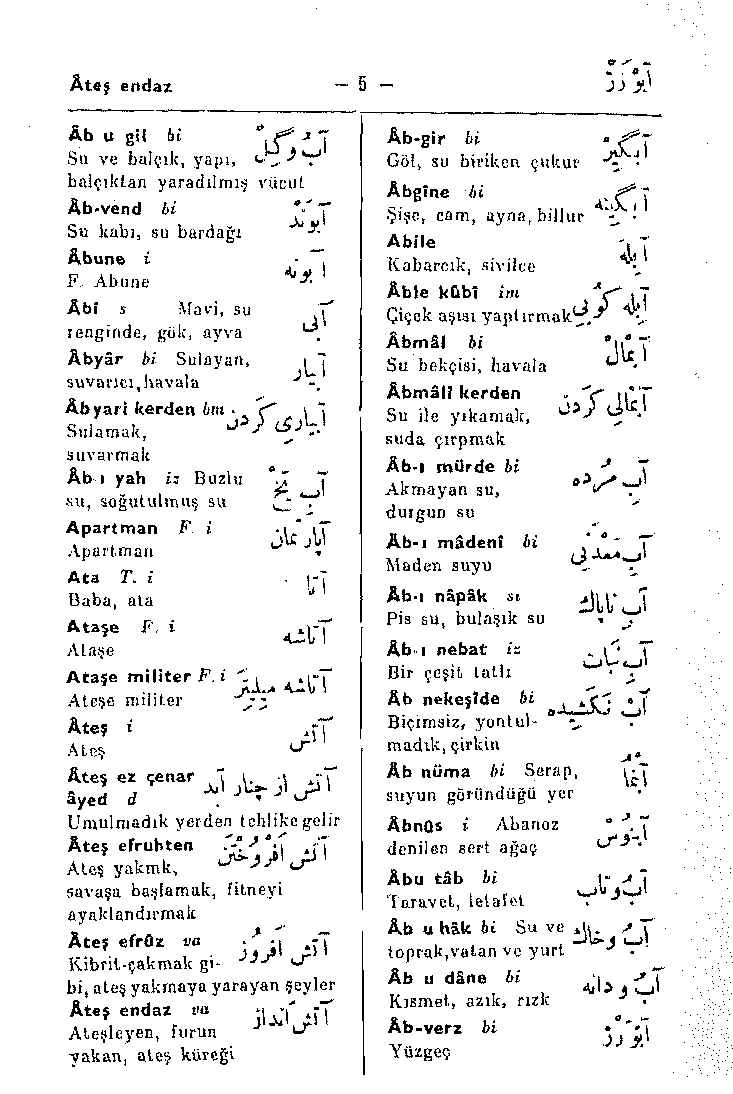 Âteş endaz — 5 — آبْوَرْزْ
Âb-gir bi آبگیرْ
Göl, su biriken çukur
Âbgîne bi آبگینه
Şişe, cam, ayna, billur
Abile آبله
Kabarcık, sivilce
Âble kûbî im آبله کوبی
Çiçek aşısı yaptırmak
Âbmâl bi آبْمالْ
Su bekçisi, havala
Âbmâlî kerden آبمالی کردن
Su ile yıkamak,
suda çırpmak
Âb-ı mürde bi آب مُرده
Akmayan su,
durgun su
Âb-ı mâdenî bi آبِ مَعْدَنی
Maden suyu
Âb-ı nâpâk st آبِ ناپاك
Pis su, bulaşık su
Âb-ı nebat iz آبِ نَبات
Bir çeşit tatlı
Âb nekeşîde bi آبْ نَكَشیده
Biçimsiz, yontul-
madık, çirkin
Âb nüma bi Serap, آبْنُما
suyun göründüğü yer
Âbnûs i Abanoz آبْنُوسْ
denilen sert ağaç
Âbu tâb bi آبُ و تاب
Taravet, letafet
Âb u hâk bi Su ve آبُ و خاك
toprak, vatan ve yurt
Âb u dâne bi آبُ و دانه
Kısmet, azık, rızk
Âb-verz bi آبْوَرْزْ
Yüzgeç
Âb u gil bi آبُ وگِلْ
Su ve balçık, yapı,
balçıktan yaradılmış vücut
Âb-vend bi آبْوَنْد
Su kabı, su bardağı
Âbune i آبونه
F. Abune
Âbî s Mavi, su آبی
renginde, gök, ayva
Âbyâr bi Sulayan, آبیار
suvarıcı, havala
Âbyari kerden bm آبیاری کردن
Sulamak,
suvarmak
Âb-ı yah iz Buzlu آبِ یَخْ
su, soğutulmuş su
Apartman F. i آپارتمان
Apartman
Ata T. i آتا
Baba, ata
Ataşe F. i آتاشه
Ataşe
Ataşe militer F. i آتاشه میلیتر
Ateşe militer
Âteş i آتش
Ateş
Âteş ez çenar آتش از چنار آید
âyed d
Umulmadık yerden tehlike gelir
Âteş efruhten آتش اَفْروخْتَنْ
Ateş yakmk,
savaşa başlamak, fitneyi
ayaklandırmak
Âteş efrûz va آتش اَفروز
Kibrit-çakmak gi-
bi, ateş yakmaya yarayan şeyler
Âteş endaz va آتش اَنداز
Ateşleyen, furun
yakan, ateş küreği